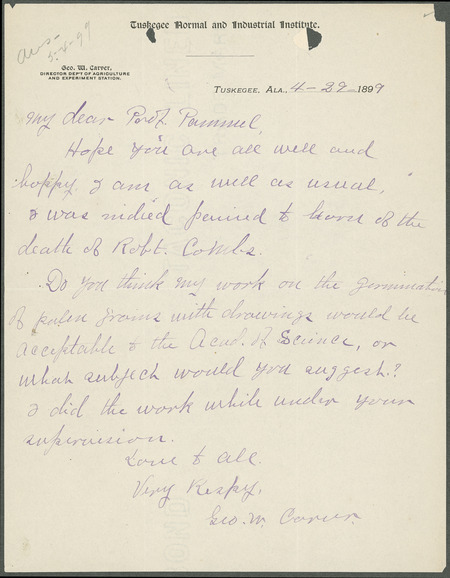 Tuskegee Normal and Industrial Institute.
ans-
5-4-99
Geo. W. Carver,
DIRECTOR DEP'T OF AGRICULTURE
AND EXPERIMENT STATION.
TUSKEGEE, ALA., 4-29-1899
My dear Prof. Pammel,
Hope you are all well and
happy. I am as well as usual,
I was indeed pained to learn of the
death of Robt. Combs.
Do you think my work on the germination
of polen grains with drawings would be
acceptable to the Acad. of Science, or
what subject would you suggest?
I did the work while under your
supervision.
Love to all.
Very Respy,
Geo. W. Carver.